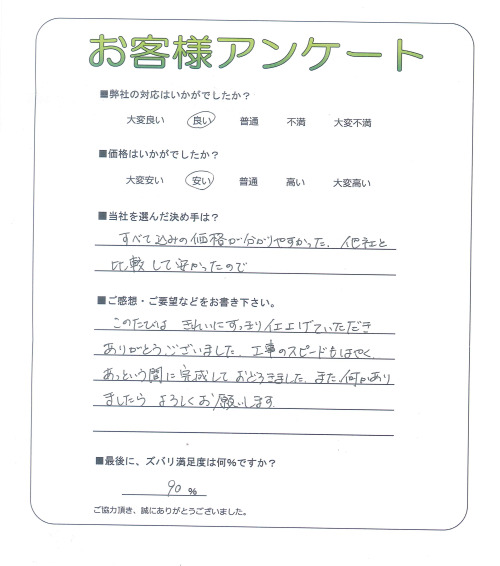 お客様アンケート
■弊社の対応はいかがでしたか？
大変良い 良い 普通 不満 大変不満
■価格はいかがでしたか？
大変安い 安い 普通 高い 大変高い
■当社を選んだ決め手は？
すべて込みの価格が分かりやすかった、他社と
比較して安かったので
■ご感想・ご要望などをお書き下さい。
このたびは きれいにすっきり仕上げていただき
ありがとうございました。工事のスピードもはやく、
あっという間に完成しておどろきました。また何かあり
ましたら よろしくお願いします。
■最後に、ズバリ満足度は何%ですか？
90 %
ご協力頂き、誠にありがとうございました。